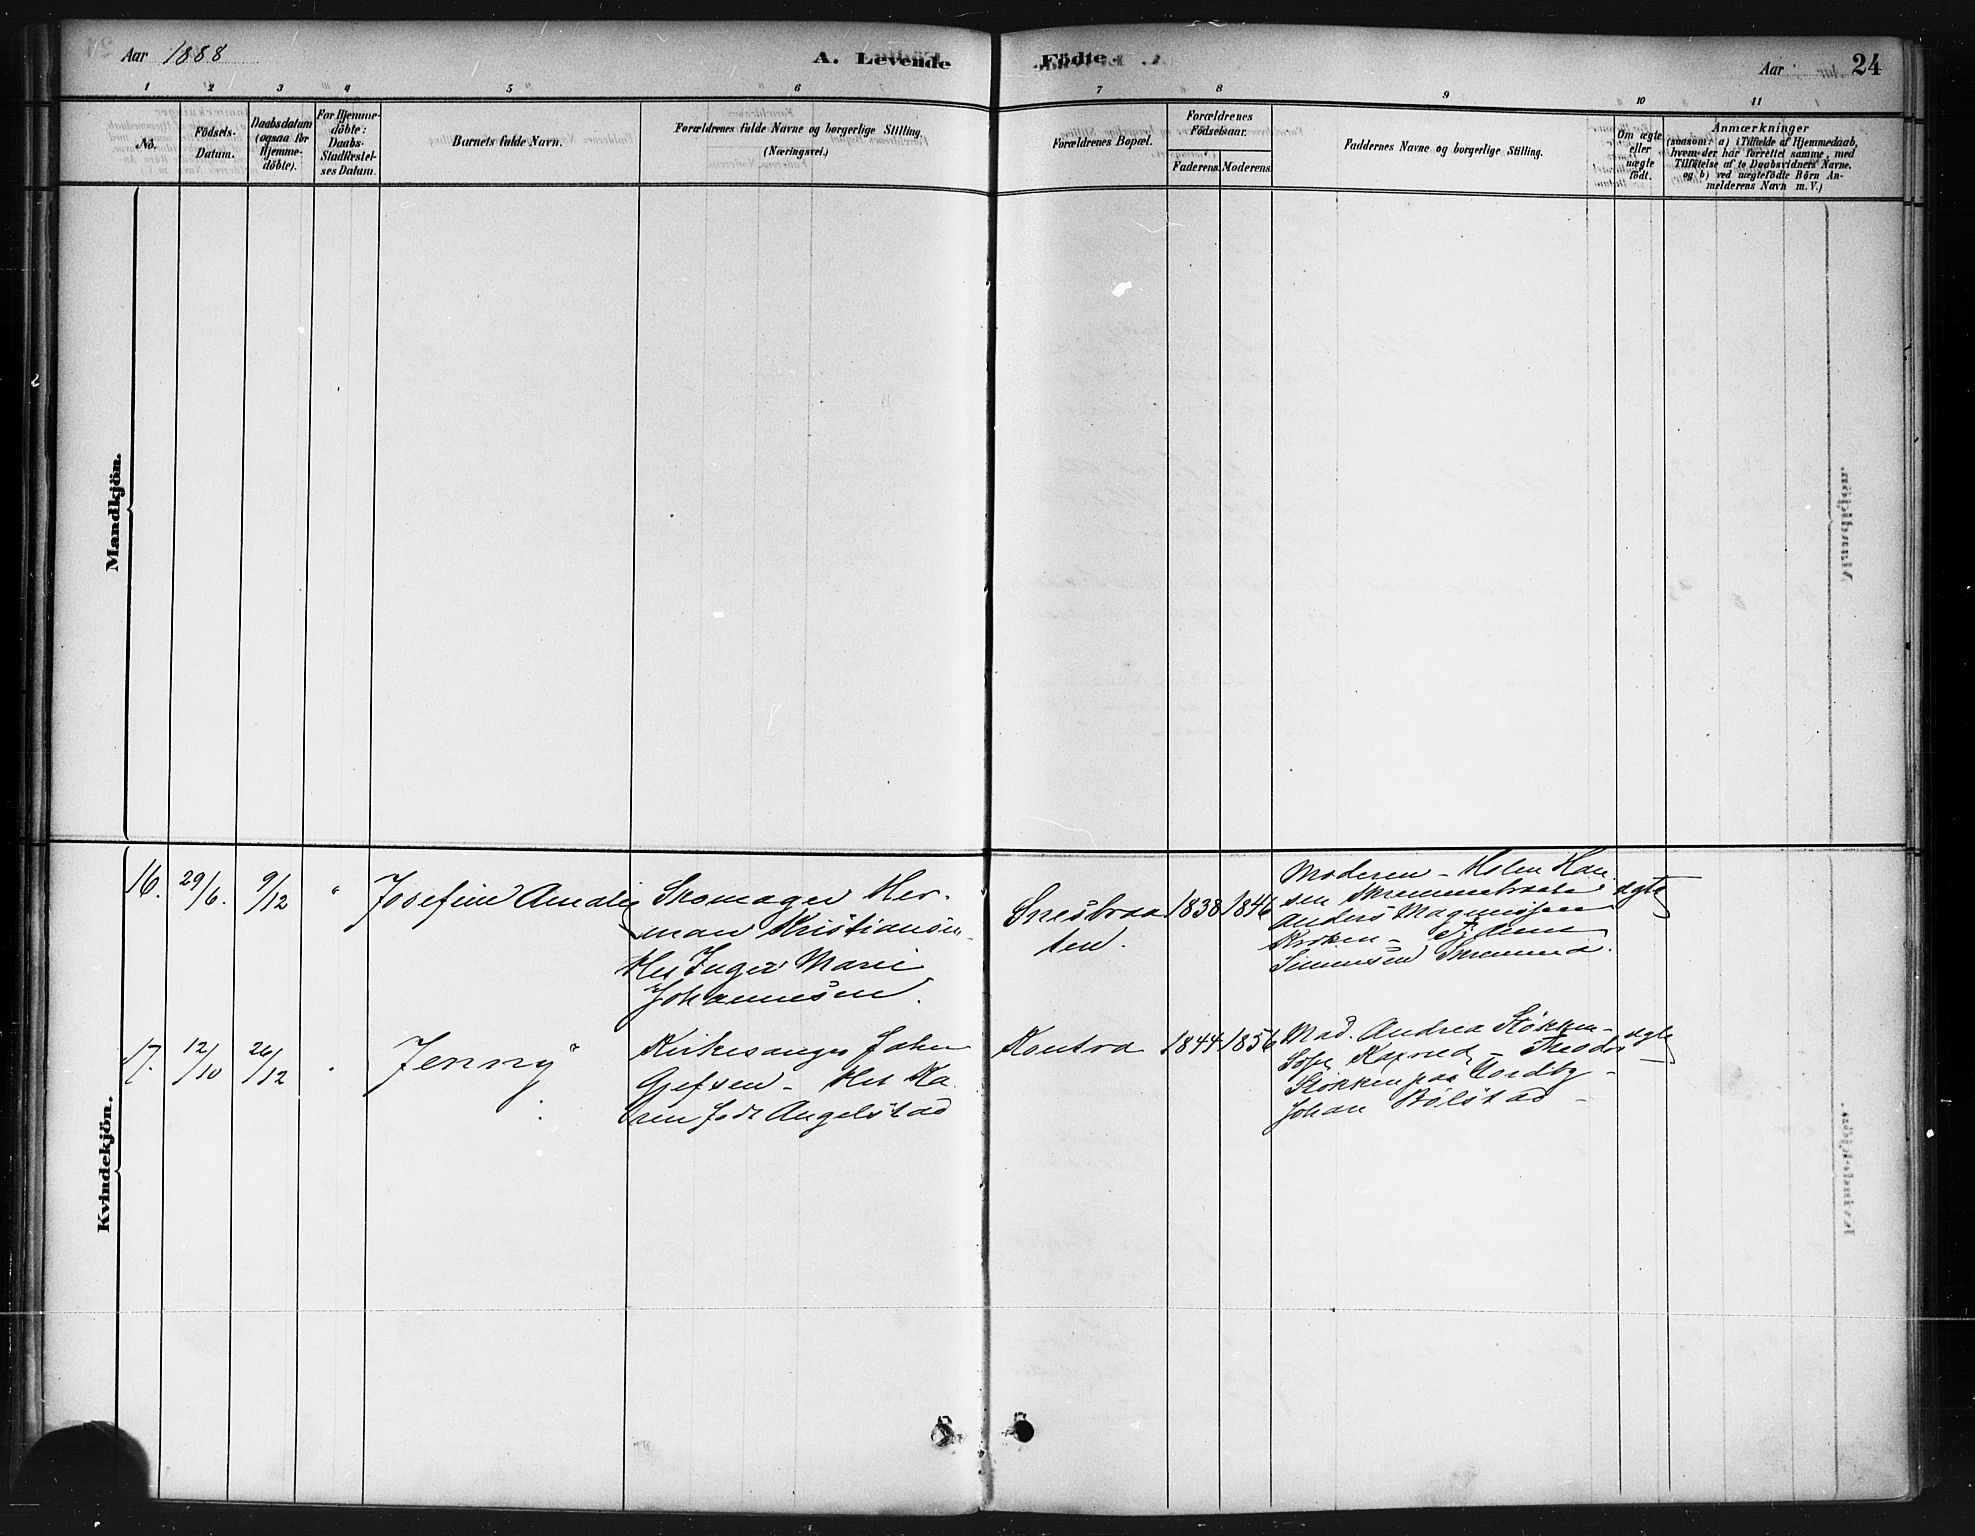 Aar 1888
A. Levende
Fødte.
Aar
24
1 2 3 4 5 6 7 8 9 10 11
No.
Födsels-
Datum.
Daabsdatum
(ogsaa for
Hjemme-
döbte).
For Hjemme-
döbte:
Daabs-
Stadfæstel-
ses Datum.
Barnets fulde Navn.
Forældrenes fulde Navne og borgerlige Stilling.
(Næringsvei.)
Forældrenes Bopæl.
Forældrenes
Födselsaar.
Faderens. Moderens.
Faddernes Navne og borgerlige Stilling.
Om ægte
eller
uægte
født.
Anmærkninger
(saasom: a) i Tilfælde af Hjemmedaab,
hvem der har forrettet samme, med
Tilføielse af to Daabsvidners Navne.
og b) ved uægtefødte Børn An-
melderens Navn m. V.)
Mandkjön.
Kvindekjön.
16. 29/6. 9/12 "
Josefine Amalie
Skomager Her-
man Kristiansen-
Hus Inger Marie
Johannesen.
Snesbraa
ten.
1838 1846
Moderen - Helen Han
sen
Anders Magnussen
Kroken -
Simensen
ægte
17. 12/10 26/12 "
Jenny
Kirkesanger Johan
Gjefsen - Hus Ka
ren født Angelstad
Kontra
1844 1856
Mad. Andrea Stökken-
Sofie - Theodor
Stökken paa Nordby -
Johan Bølstad -
ægte